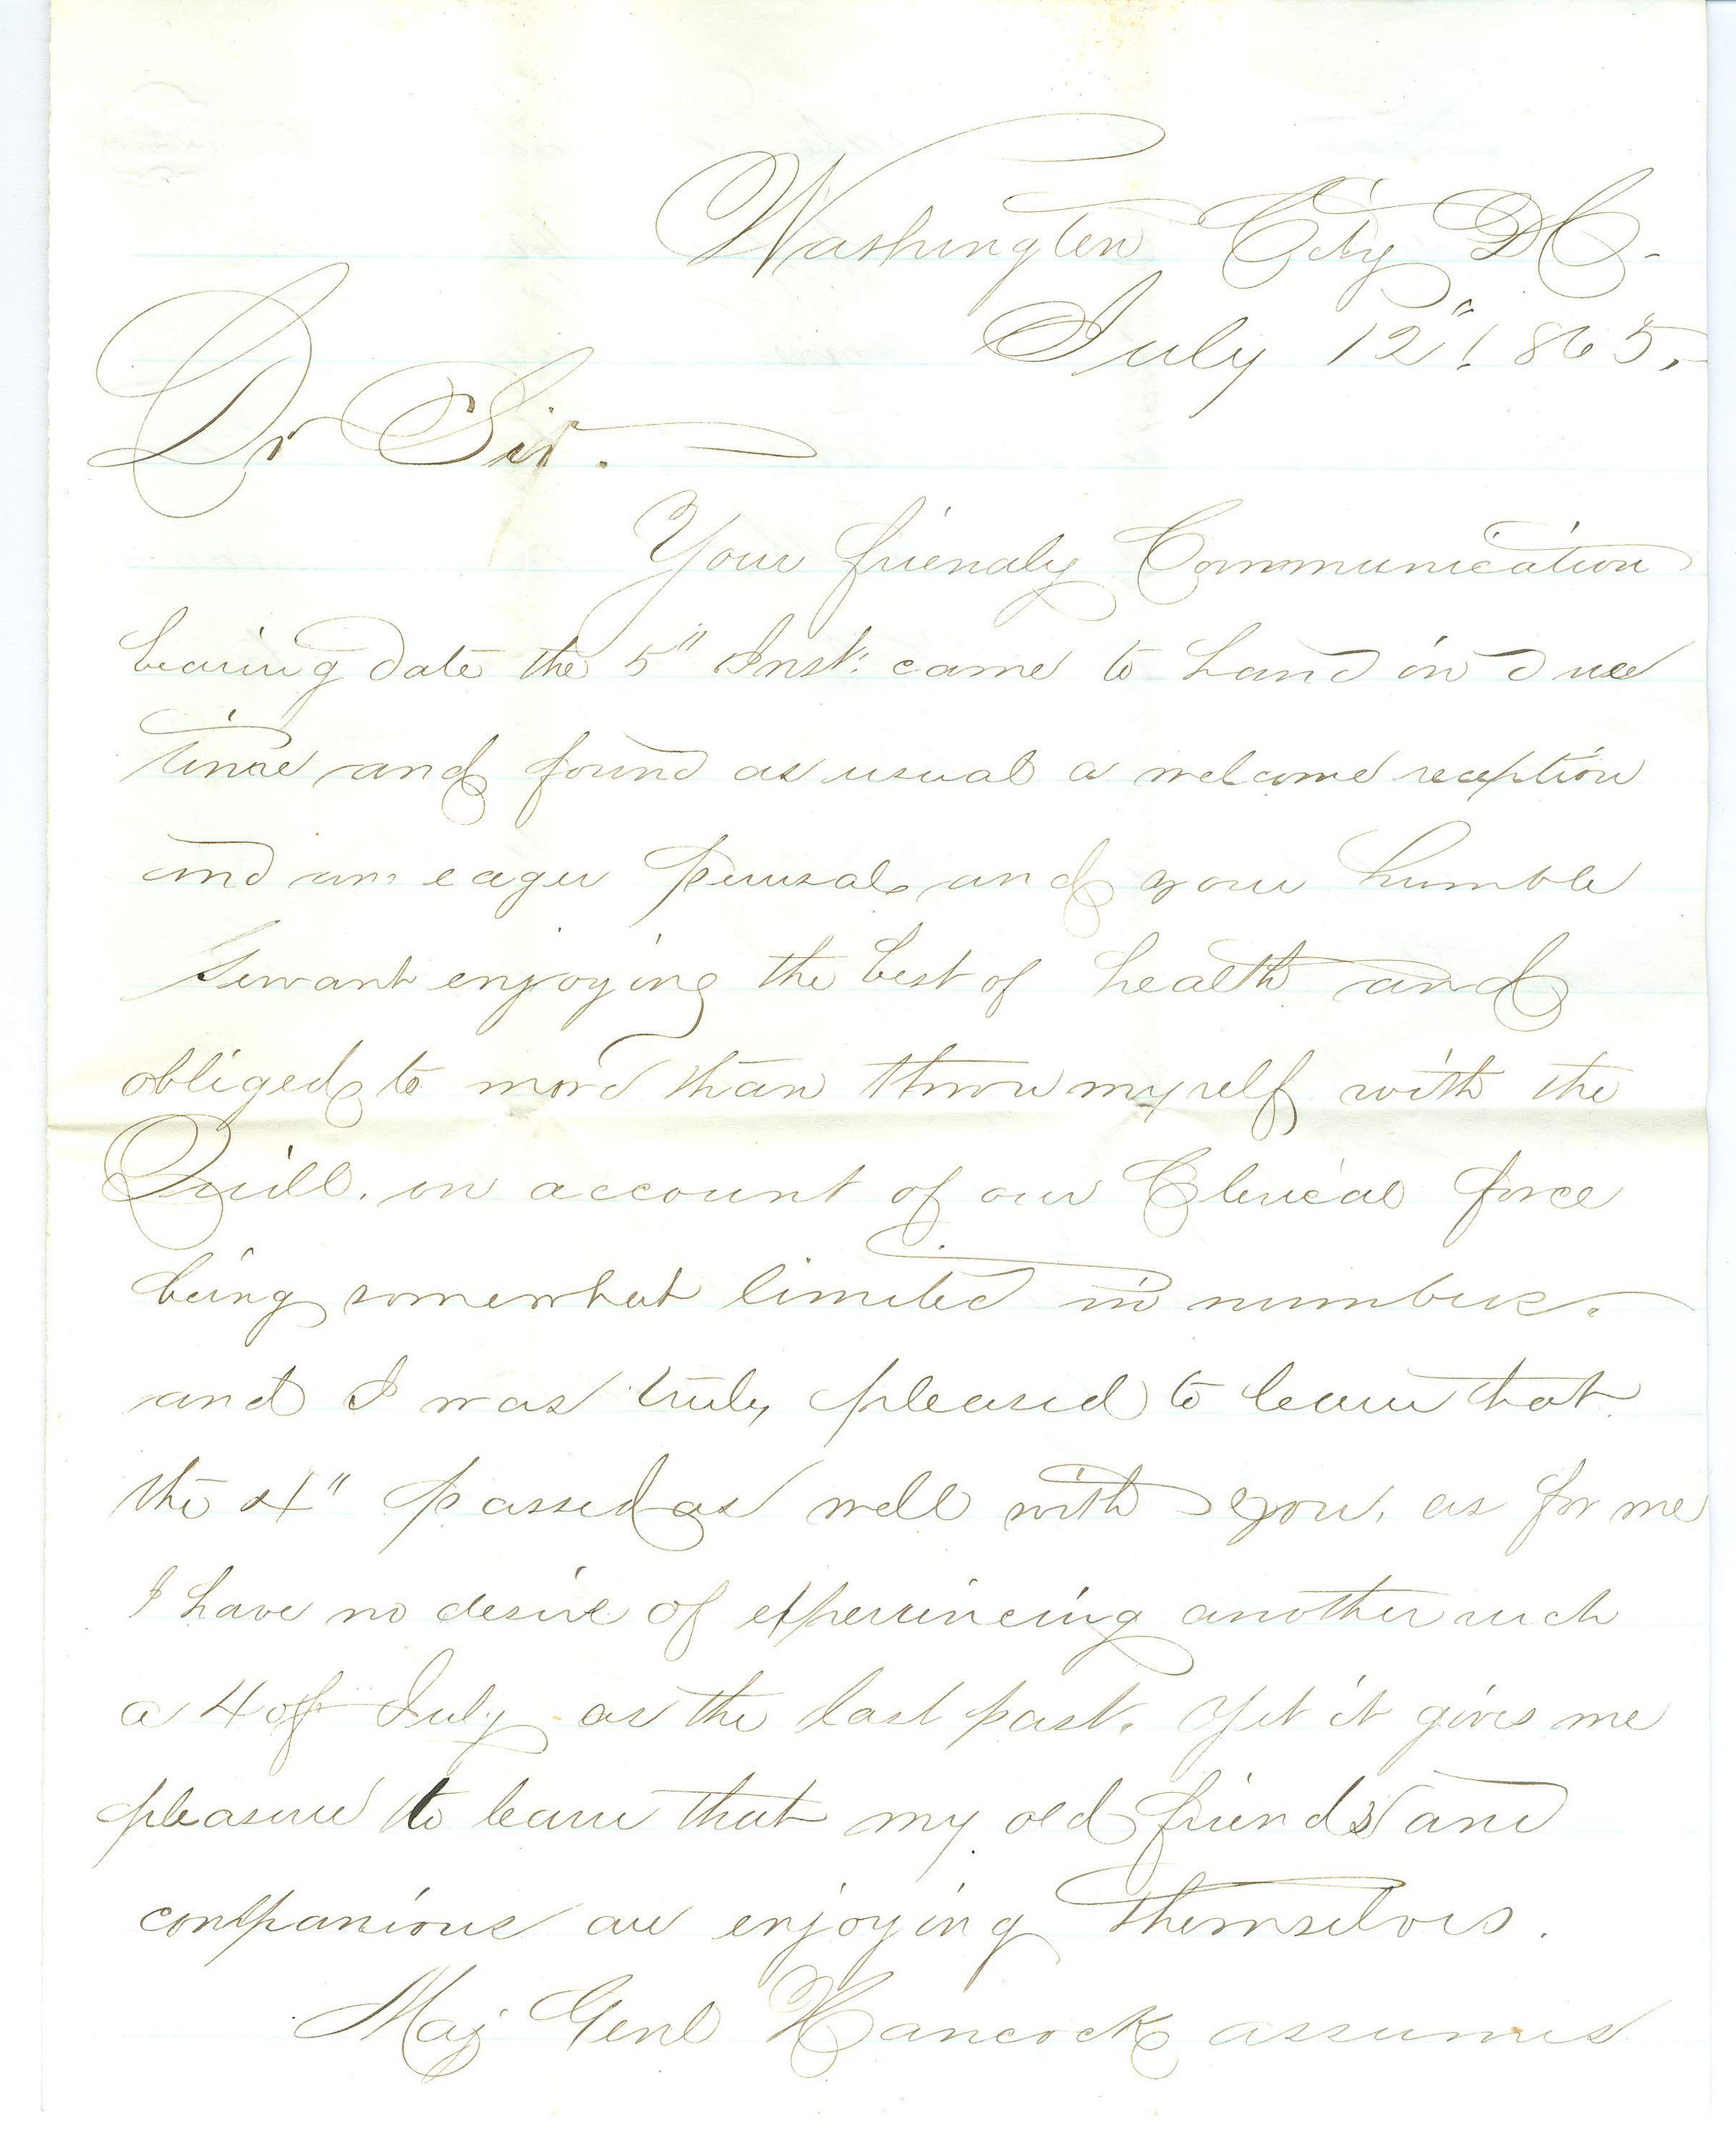 Washington City DC.
July 12" 1865.
Dr Sir.
Your friendly Communication
bearing date the 5" Inst: came to hand in due
time and found as usual a welcome reception
and an eager perusal and your humble
Servant enjoying the best of health and
obliged to more than throw myself with the
Quill. on account of our Clerical force
being somewhat limited in numbers.
and I was truly pleased to learn that
the 4" passed as well with you, as for me
I have no desire of experiencing another such
a 4 of July as the last past. Yet it gives me
pleasure to learn that my old friends and
companions are enjoying themselves.
Maj Genl Hancock assumes